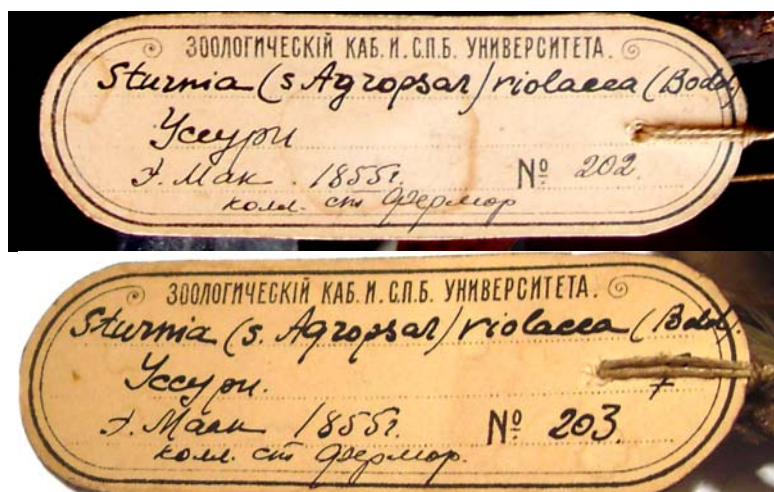 ЗООЛОГИЧЕСКІЙ КАБ. И. С.П.Б. УНИВЕРСИТЕТА.
Sturnia (s Agropsar) violacea (Bodd)
Уссури
Э. Мак . 1855г. № 202.
колл. ст Фермор
ЗООЛОГИЧЕСКІЙ КАБ. И. С.П.Б. УНИВЕРСИТЕТА.
Sturnia (s. Agropsar) violacea (Bodd).
Уссури.
Э. Маак 1855г. № 203.
колл. ст Фермор.